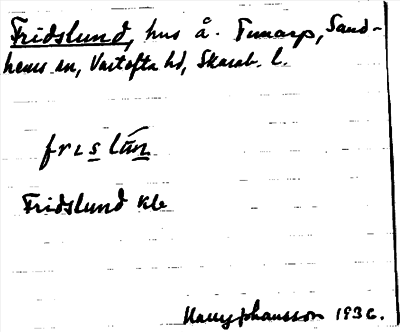 Fridslund, hus å. Tumarp, Sand-
hems sn, Vartofta hd, Skarab. l.
frɩs lún
Fridslund kle
Harry Johansson 1936.